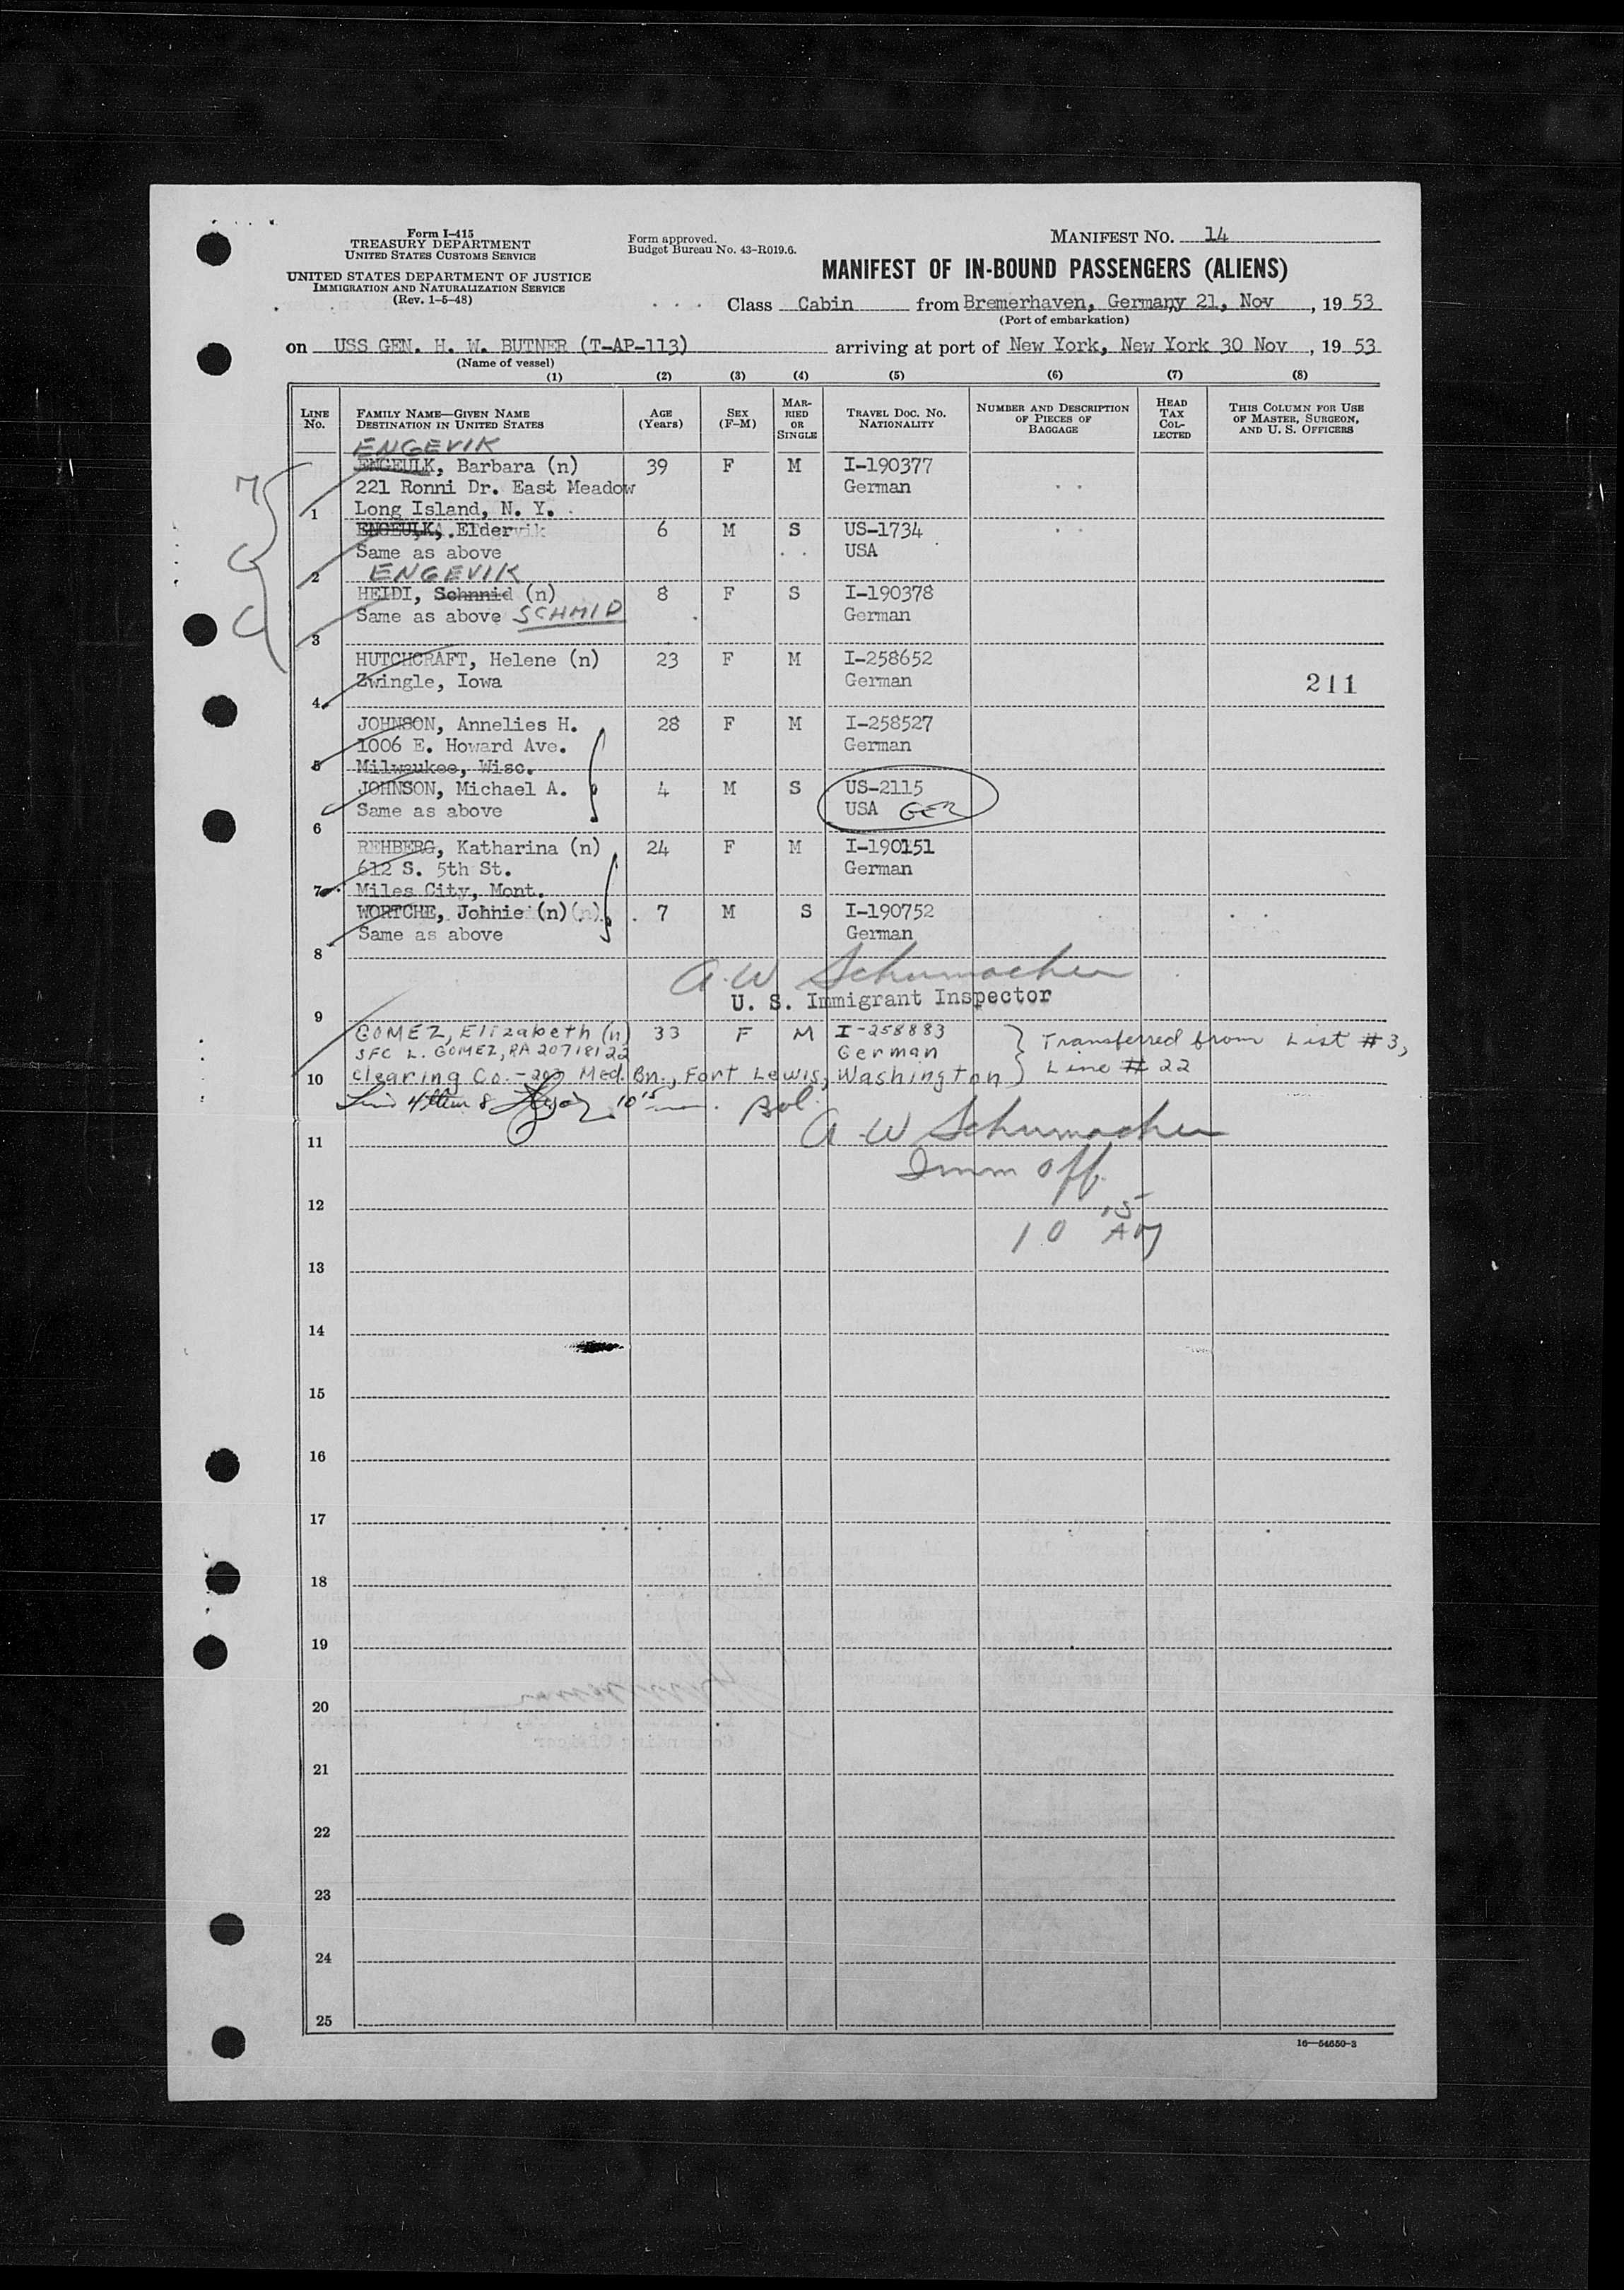 Form I-415
TREASURY DEPARTMENT
UNITED STATES CUSTOMS SERVICE
UNITED STATES DEPARTMENT OF JUSTICE
IMMIGRATION AND NATURALIZATION SERVICE
(Rev. 1-5-48)
Form approved.
Budget Bureau No. 43-R019.6.
MANIFEST NO. 14
MANIFEST OF IN-BOUND PASSENGERS (ALIENS)
Class Cabin from Bremerhaven, Germany 21, Nov, 1953
(Port of embarkation)
on USS GEN. H. W. BUTNER (T-AP-113) arriving at port of New York, New York 30 Nov, 1953
(Name of vessel)
(1) (2) (3) (4) (5) (6) (7) (8)
LINE NO.
FAMILY NAME—GIVEN NAME
DESTINATION IN UNITED STATES
AGE (Years)
SEX (F-M)
MARRIED OR SINGLE
TRAVEL DOC. NO. NATIONALITY
NUMBER AND DESCRIPTION OF PIECES OF BAGGAGE
HEAD TAX COLLECTED
THIS COLUMN FOR USE OF MASTER, SURGEON, AND U. S. OFFICERS
ENGEVIK
ENGEULK, Barbara (n) 39 F M I-190377
221 Ronni Dr. East Meadow German
1 Long Island, N. Y.
ENGEULK, Elder 6 M S US-1734
Same as above USA
2 ENGEVIK
HEIDI, Schnnid (n) 8 F S I-190378
Same as above SCHMID German
3
HUTCHCRAFT, Helene (n) 23 F M I-258652
Zwingle, Iowa German 211
4
JOHNSON, Annelies H. 28 F M I-258527
1006 E. Howard Ave. German
5 Milwaukee, Wisc.
JOHNSON, Michael A. 4 M S US-2115
Same as above USA GER
6
REHBERG, Katharina (n) 24 F M I-190151
612 S. 5th St. German
7 Miles City, Mont.
WORTCHE, Johnie (n) (n) 7 M S I-190752
Same as above German
8
A. W. Schumacher
U. S. Immigrant Inspector
9
GOMEZ, Elizabeth (n) 33 F M I-258883 Transferred from List #3,
SFC L. GOMEZ, RA 20718122 German Line # 22
10 Clearing Co.-202 Med. Bn., Fort Lewis, Washington
10 15
A W Schumacher
11
Imm Off.
12
10 15 AM
13
14
15
16
17
18
19
20
21
22
23
24
25
16—54650-3